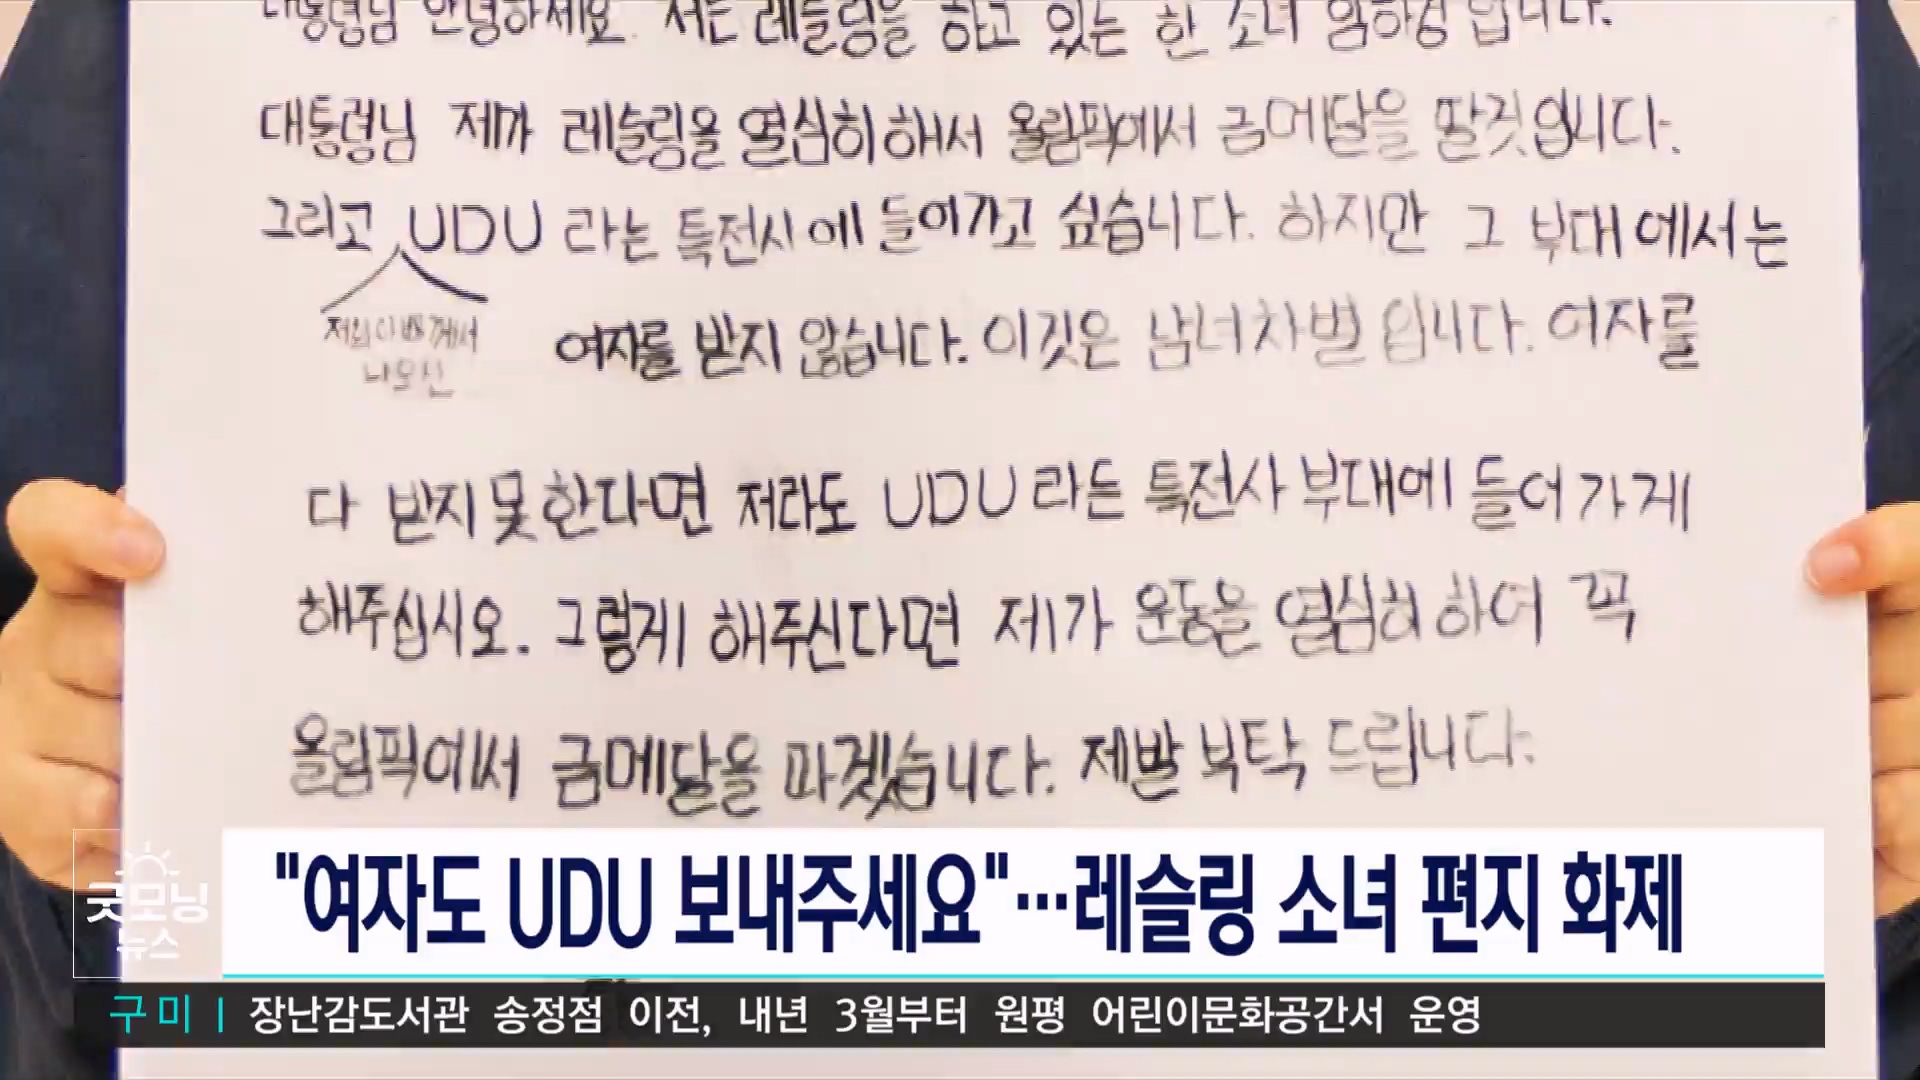 대통령님 안녕하세요. 저는 레슬링을 하고 있는 한 소녀 임하경 입니다.
대통령님 제가 레슬링을 열심히 해서 올림픽에서 금메달을 딸것입니다.
그리고 UDU 라는 특전사에 들어가고 싶습니다. 하지만 그 부대에서는
저희아빠께서
나오신
여자를 받지 않습니다. 이것은 남녀차별 입니다. 여자를
다 받지 못한다면 저라도 UDU 라는 특전사 부대에 들어가게
해주십시오. 그렇게 해주신다면 제가 운동을 열심히 하여 꼭
올림픽에서 금메달을 따겠습니다. 제발 부탁 드립니다.
"여자도 UDU 보내주세요"…레슬링 소녀 편지 화제
굿모닝
뉴스
구미 | 장난감도서관 송정점 이전, 내년 3월부터 원평 어린이문화공간서 운영